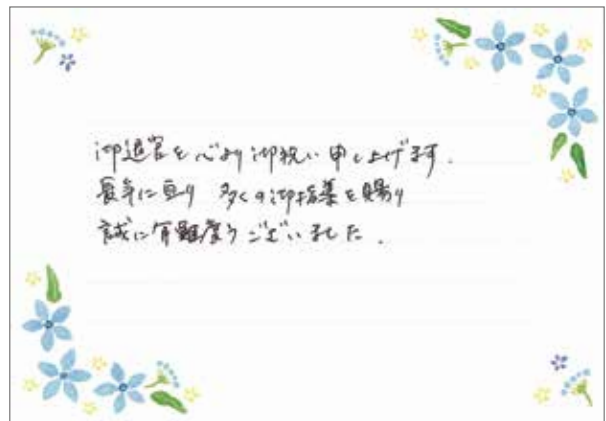 御退官を心より御祝い申し上げます.
長年に亘り 多くの御指導を賜り
誠に有難度うございました.